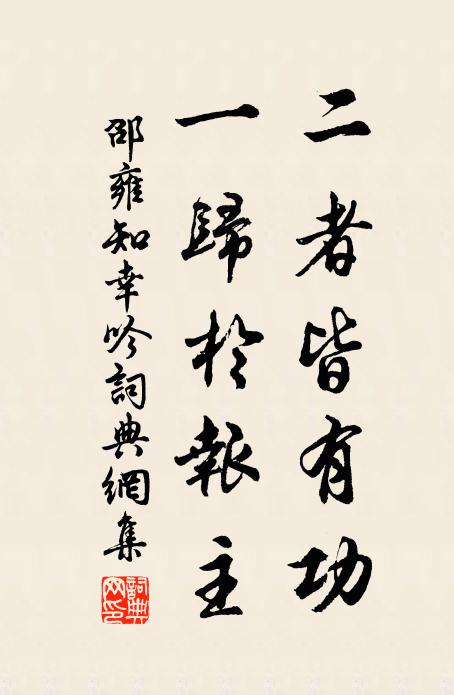 二者皆有功
一歸於報主
邵雍知幸吟詞典網集
詞典網印